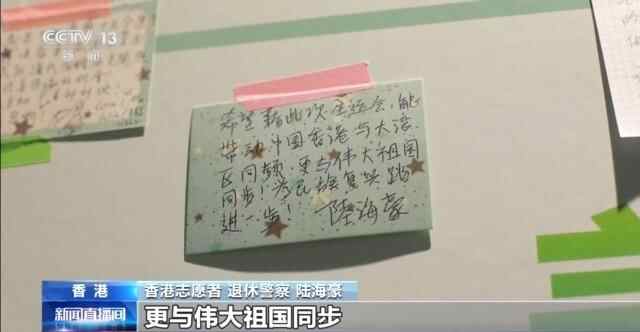 CCTV 13
新闻
希望藉此次全运会,能
带动中国香港与大湾
区同频、更与伟大祖国
同步!为民族复兴踏
进一步! 陸海豪
香港 香港志愿者 退休警察 陆海豪
新闻直播间 更与伟大祖国同步